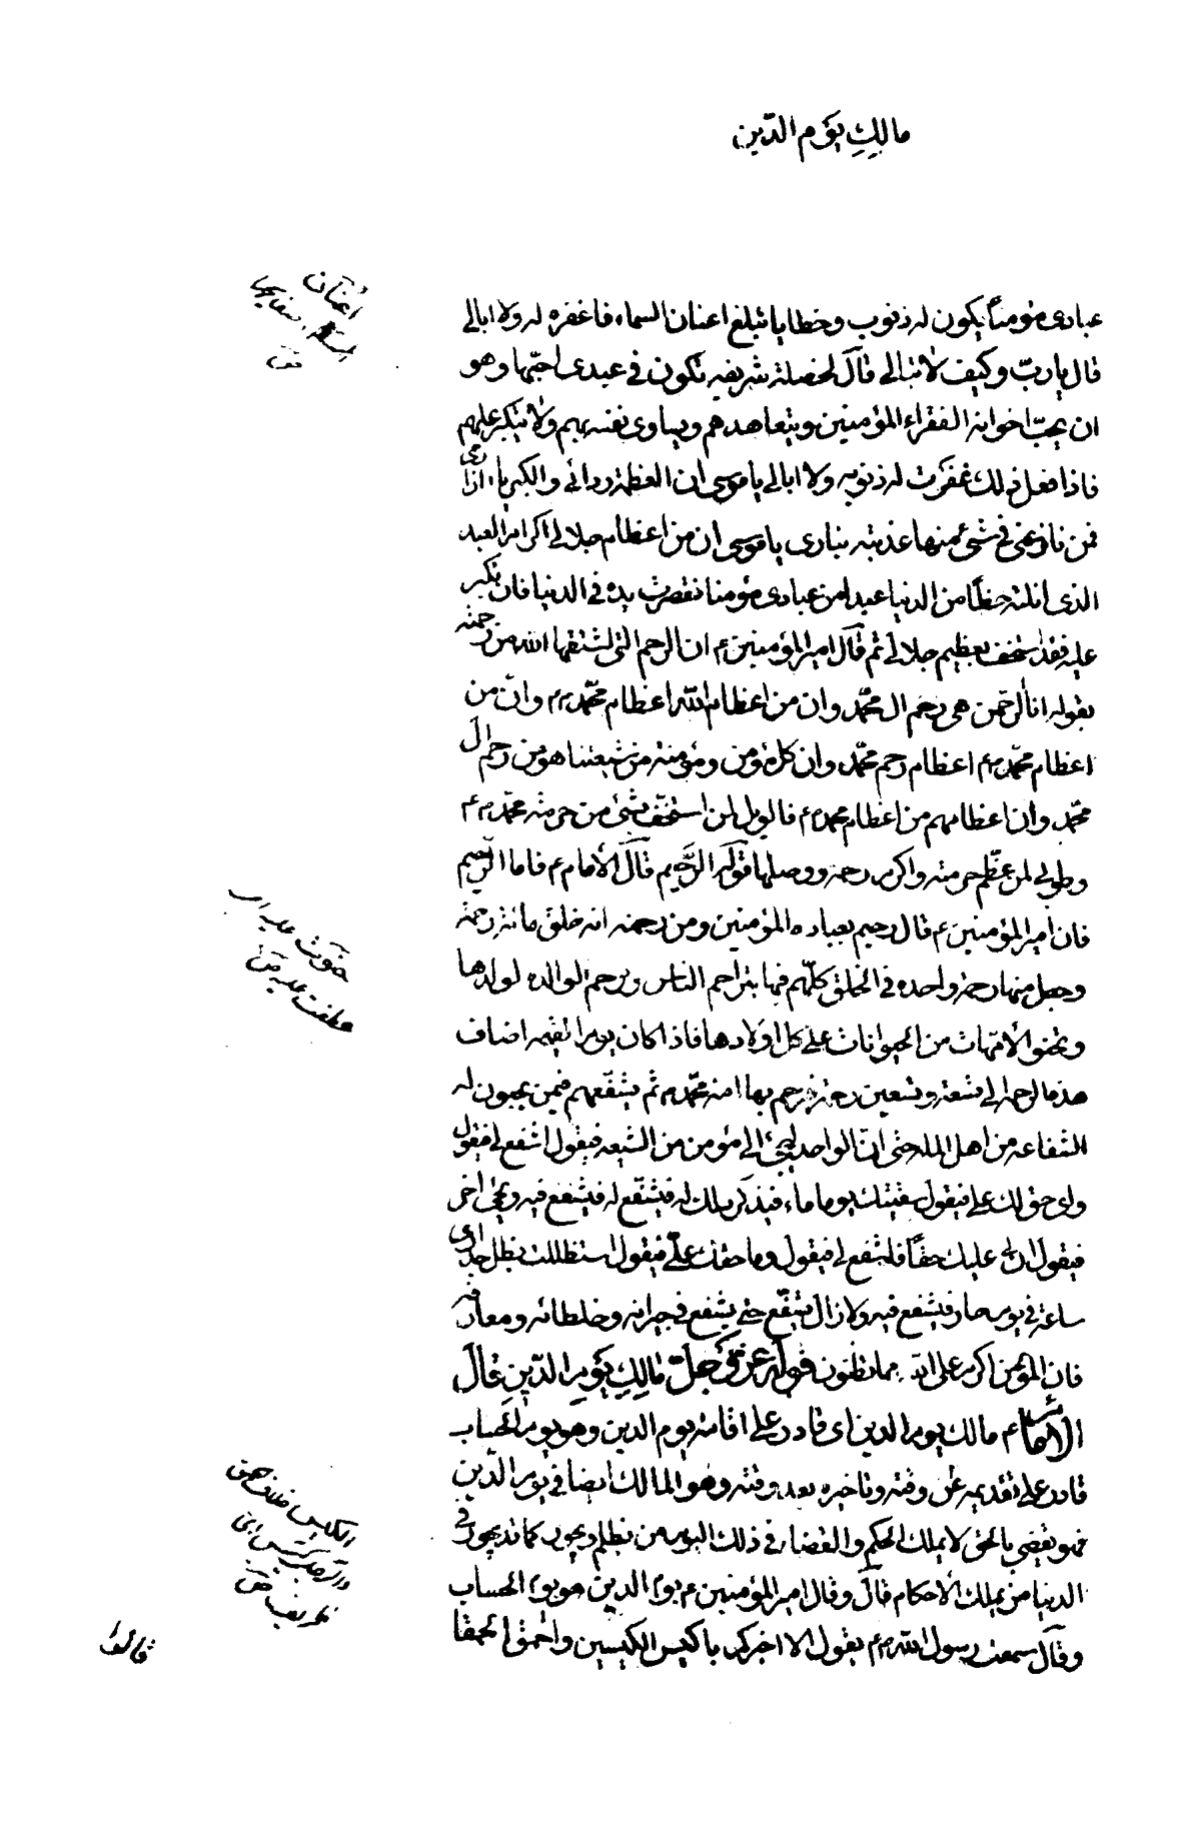 مالِكِ يَوْمِ الدّين
عبادى مؤمناً يكون له ذنوب وخطايا تبلغ اعنان السماء فاغفره له ولا ابالى
قال يا ربّ وكيف لا تبالى قال لخصلة شريفه تكون فى عبدى احبّها وهو
ان يحبّ اخوانه الفقراء المؤمنين ويتعاهدهم ويساوى نفسه بهم ولا يتكبر عليهم
فاذا فعل ذلك غفرت له ذنوبه ولا ابالى يا موسى ان العظمة ردائى والكبرياء ازارى
فمن نازعنى فى شئ منها عذبته بنارى يا موسى ان من اعظام جلالى اكرام العبد
الذى انلته حظاً من الدنيا عبداً من عبادى مؤمنا تقصرت يده فى الدنيا فان تكبر
عليه فقد استخف بعظيم جلالى ثم قال امير المؤمنين ع ان الرحم التى اشتقها الله من رحمته
بقوله انا الرحمن هى رحم ال محمّد وان من اعظام الله اعظام محمّد ص م وانّ من
اعظام محمّد ص م اعظام رحم محمّد وان كل مؤمن ومؤمنة من شيعتنا هو من رحم ال
محمّد وان اعظامهم من اعظام محمد ص م فالويل لمن استخفّ بشئ من حرمة محمّد ص م
وطوبى لمن عظّم حرمته واكرم رحمه ووصلها قوله الرَّحيم قال الأمام ع فاما الرّحيم
فان امير المؤمنين ع قال رحيم بعباده المؤمنين ومن رحمته انه خلق مائة رحمة
وجعل منها رحمة واحده فى الخلق كلّهم فبها يتراحم الناس وترحم الوالده لولدها
وتحنو الأمّهات من الحيوانات على كل اولادها فاذا كان يوم القيمه اضاف
هذه الرحمة الى تسعة وتسعين رحمة فيرحم بها امة محمّد ص ثم يشفّعهم فيمن يحبون له
الشفاعه من اهل الملة حتى انّ الواحد ليجئ الى مؤمن من الشيعه فيقول اشفع لى فيقول
واى حق لك على فيقول سقيتك يوما ماء فيذكر ذلك له فيشفّع له فيشفع فيه ويجئ اخر
فيقول ان لى عليك حقّاً فاشفع لى فيقول وما حقك علىّ فيقول استظللت بظل جدارى
ساعة فى يوم حار فيشفع فيه ولا زال يشفّع حتى يشفع فى جيرانه وخلطائه ومعارفه
فان المؤمن اكرم على الله مما تظنون قوله عزّ وَجلّ مالِكِ يَوْمِ الدّينِ قال
الأمام ع مالك يوم الدين اى قادر على اقامة يوم الدين وهو يوم الحساب
قادر على تقديمه عن وقته وتاخيره بعد وقته وهو المالك ايضا فى يوم الدّين
فهو يقضى بالحق لا يملك الحكم والقضاء فى ذلك اليوم من يظلم ويجور كما قد يجور فى
الدنيا من يملك الأحكام قال وقال امير المؤمنين ع يوم الدين هو يوم الحساب
وقال سمعت رسول الله ص م يقول الا اخبركم باكيس الكيسين واحمق الحمقا
اعنان
السماء صفايحها
حنوت عليه اى
عطفت عليه ص
الكيس خلاف الحمق
ظريف ص
قالوا